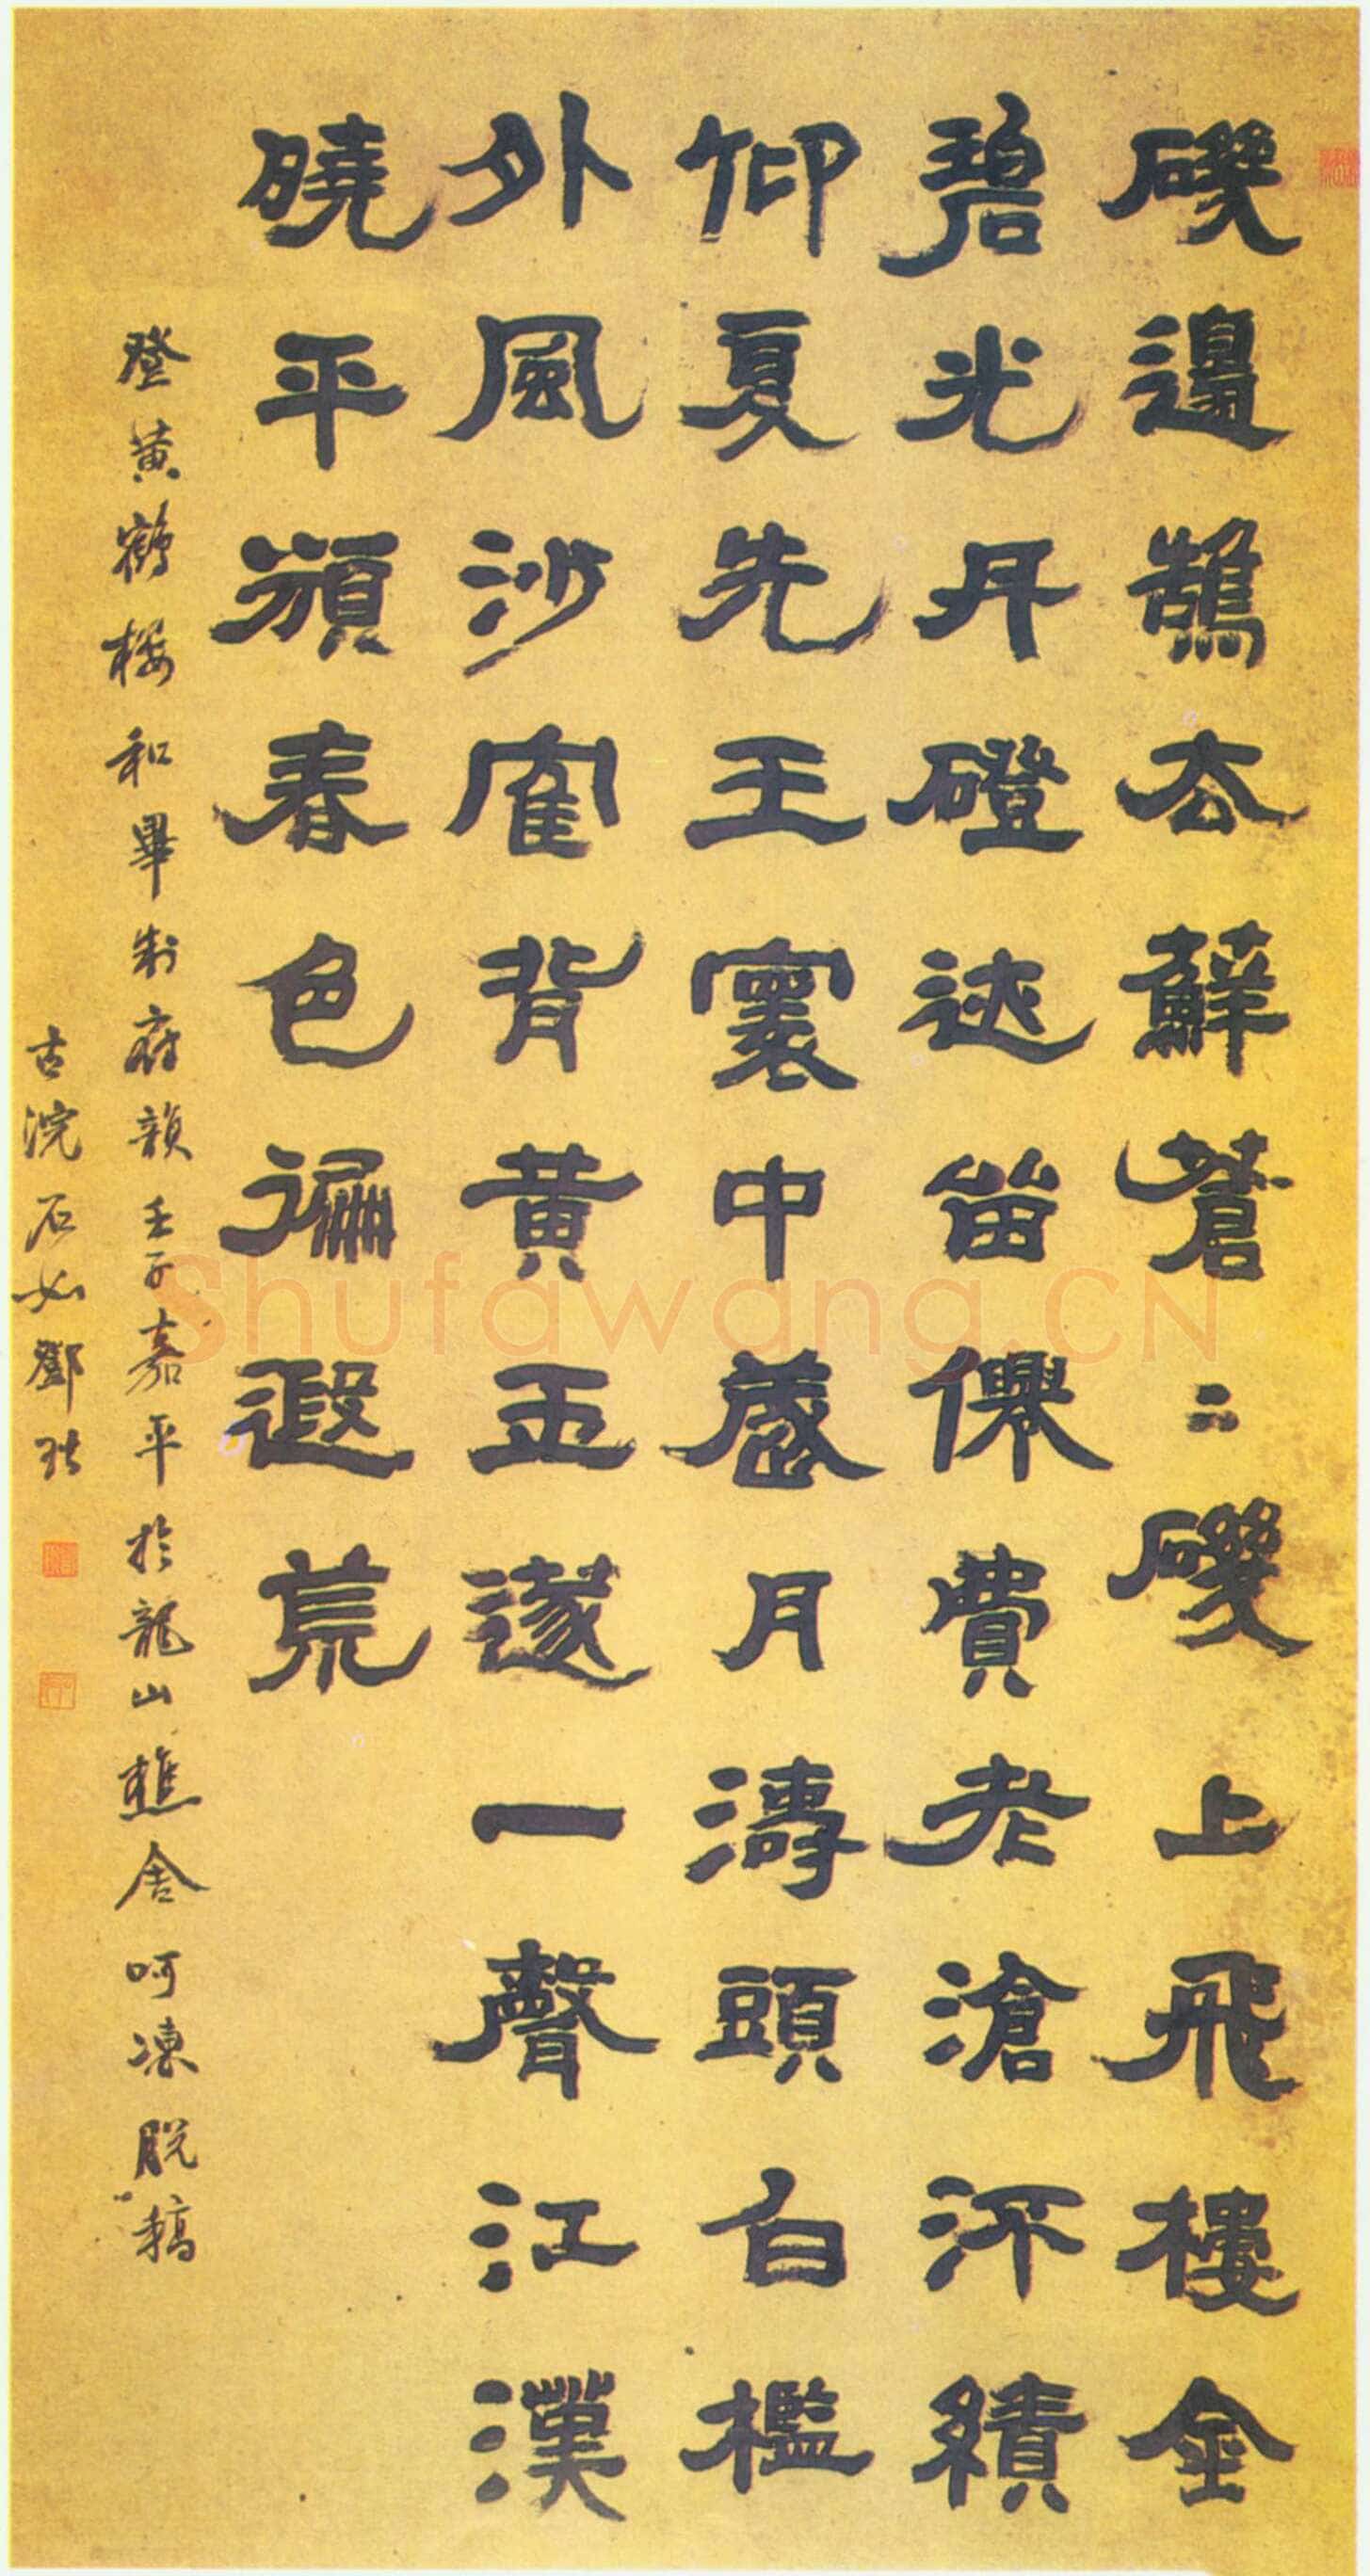 磯邊鵠太蘚蒼二磯上飛樓金
碧光丹磴迷畱僊費老滄江績
仰夏先王寰中歲月濤頭白檻
外風沙隺背黃玉篴一聲江漢
曉平頒春色徧遐荒
登黃鶴樓和畢制府韻壬子嘉平於龍山樵舍呵凍脫稿
古浣石如鄧琰
Shufawang.CN